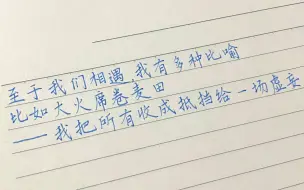 至于我们相遇,我有多种比喻
比如大火席卷麦田
——我把所有收成抵挡给一场虚妄